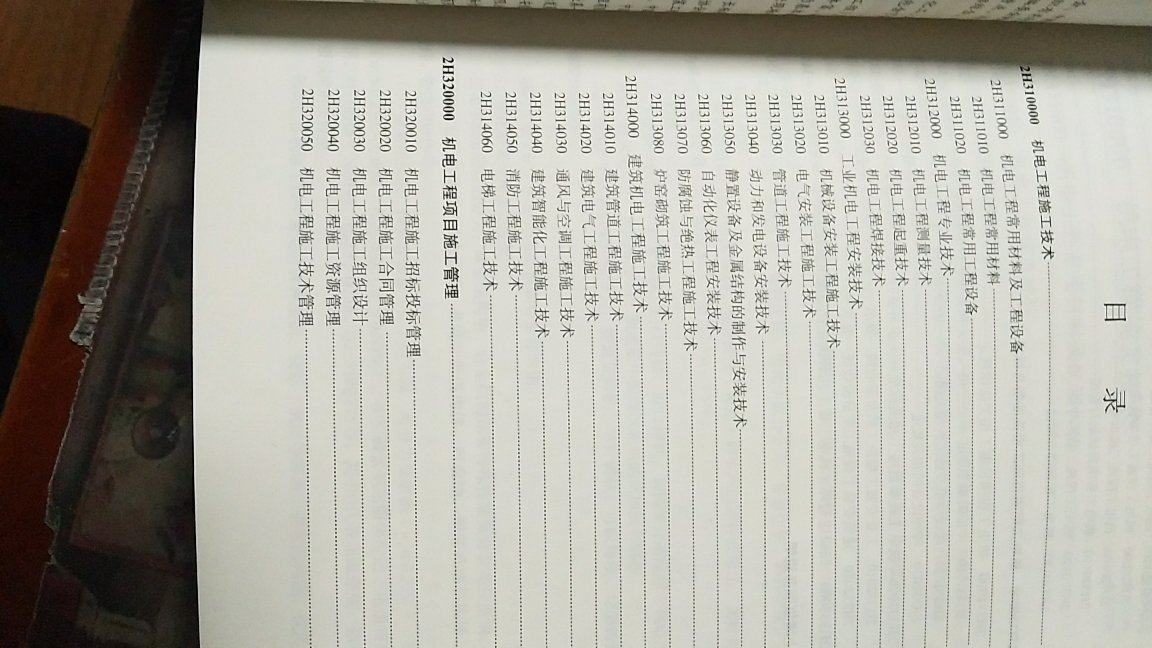 目 录
2H310000 机电工程施工技术
2H311000 机电工程常用材料及工程设备
2H311010 机电工程常用材料
2H311020 机电工程常用工程设备
2H312000 机电工程专业技术
2H312010 机电工程测量技术
2H312020 机电工程起重技术
2H312030 机电工程焊接技术
2H313000 工业机电工程安装技术
2H313010 机械设备安装工程施工技术
2H313020 电气安装工程施工技术
2H313030 管道工程施工技术
2H313040 动力和发电设备安装技术
2H313050 静置设备及金属结构的制作与安装技术
2H313060 自动化仪表工程安装技术
2H313070 防腐蚀与绝热工程施工技术
2H313080 炉窑砌筑工程施工技术
2H314000 建筑机电工程施工技术
2H314010 建筑管道工程施工技术
2H314020 建筑电气工程施工技术
2H314030 通风与空调工程施工技术
2H314040 建筑智能化工程施工技术
2H314050 消防工程施工技术
2H314060 电梯工程施工技术
2H320000 机电工程项目施工管理
2H320010 机电工程施工招标投标管理
2H320020 机电工程施工合同管理
2H320030 机电工程施工组织设计
2H320040 机电工程施工资源管理
2H320050 机电工程施工技术管理